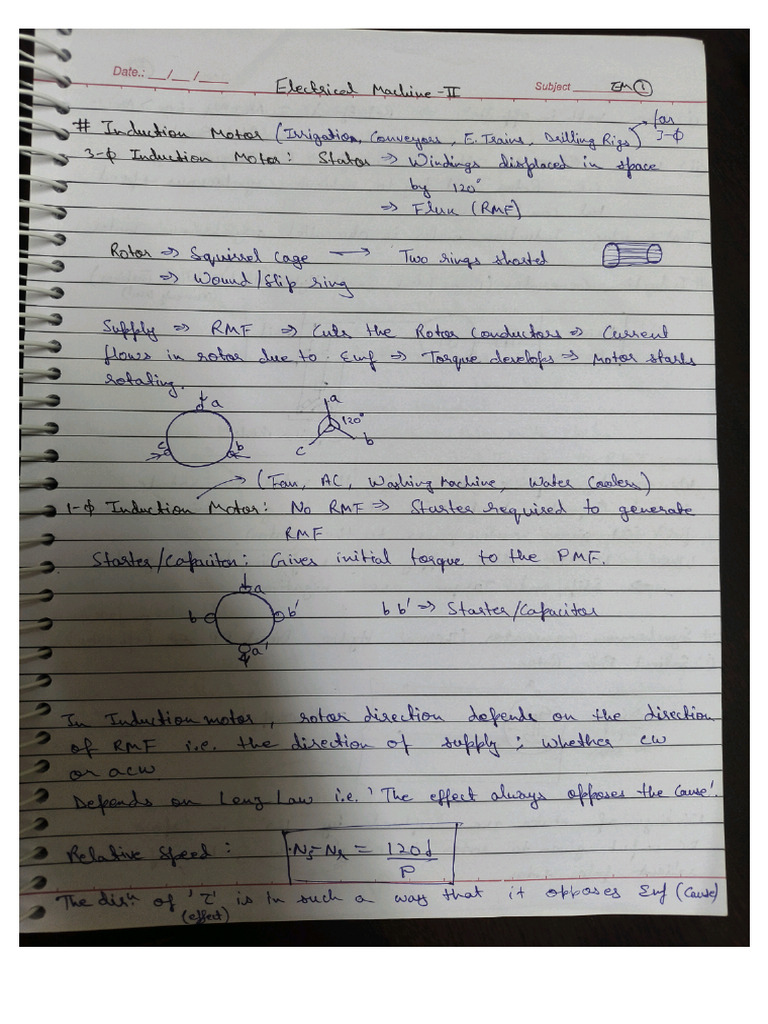 Date.: __/__/____ Electrical Machine-II Subject EM ①
# Induction Motor (Irrigation, Conveyors, E. Trains, Drilling Rigs) → for 3-Φ
3-Φ Induction Motor: Stator ⇒ Windings displaced in space
by 120°
⇒ Flux (RMF)
Rotor ⇒ Squirrel cage → Two rings shorted
⇒ Wound/Slip ring
Supply ⇒ RMF ⇒ Cuts the Rotor Conductors ⇒ Current
flows in rotor due to Emf ⇒ Torque develops ⇒ Motor starts
rotating.
a
a
120°
c b
c b
(Fan, AC, Washing Machine, Water Coolers)
1-Φ Induction Motor: No RMF ⇒ Starter required to generate
RMF
Starter/Capacitor: Gives initial torque to the PMF.
a
b b' b b' ⇒ Starter/Capacitor
a'
In Induction motor, rotor direction depends on the direction
of RMF i.e. the direction of supply; whether cw
or acw.
Depends on Lenz Law i.e. 'The effect always opposes the Cause'.
Relative Speed: Ns-Nr = 120f
P
The dirⁿ of 'τ' is in such a way that it opposes Emf (Cause)
(effect)